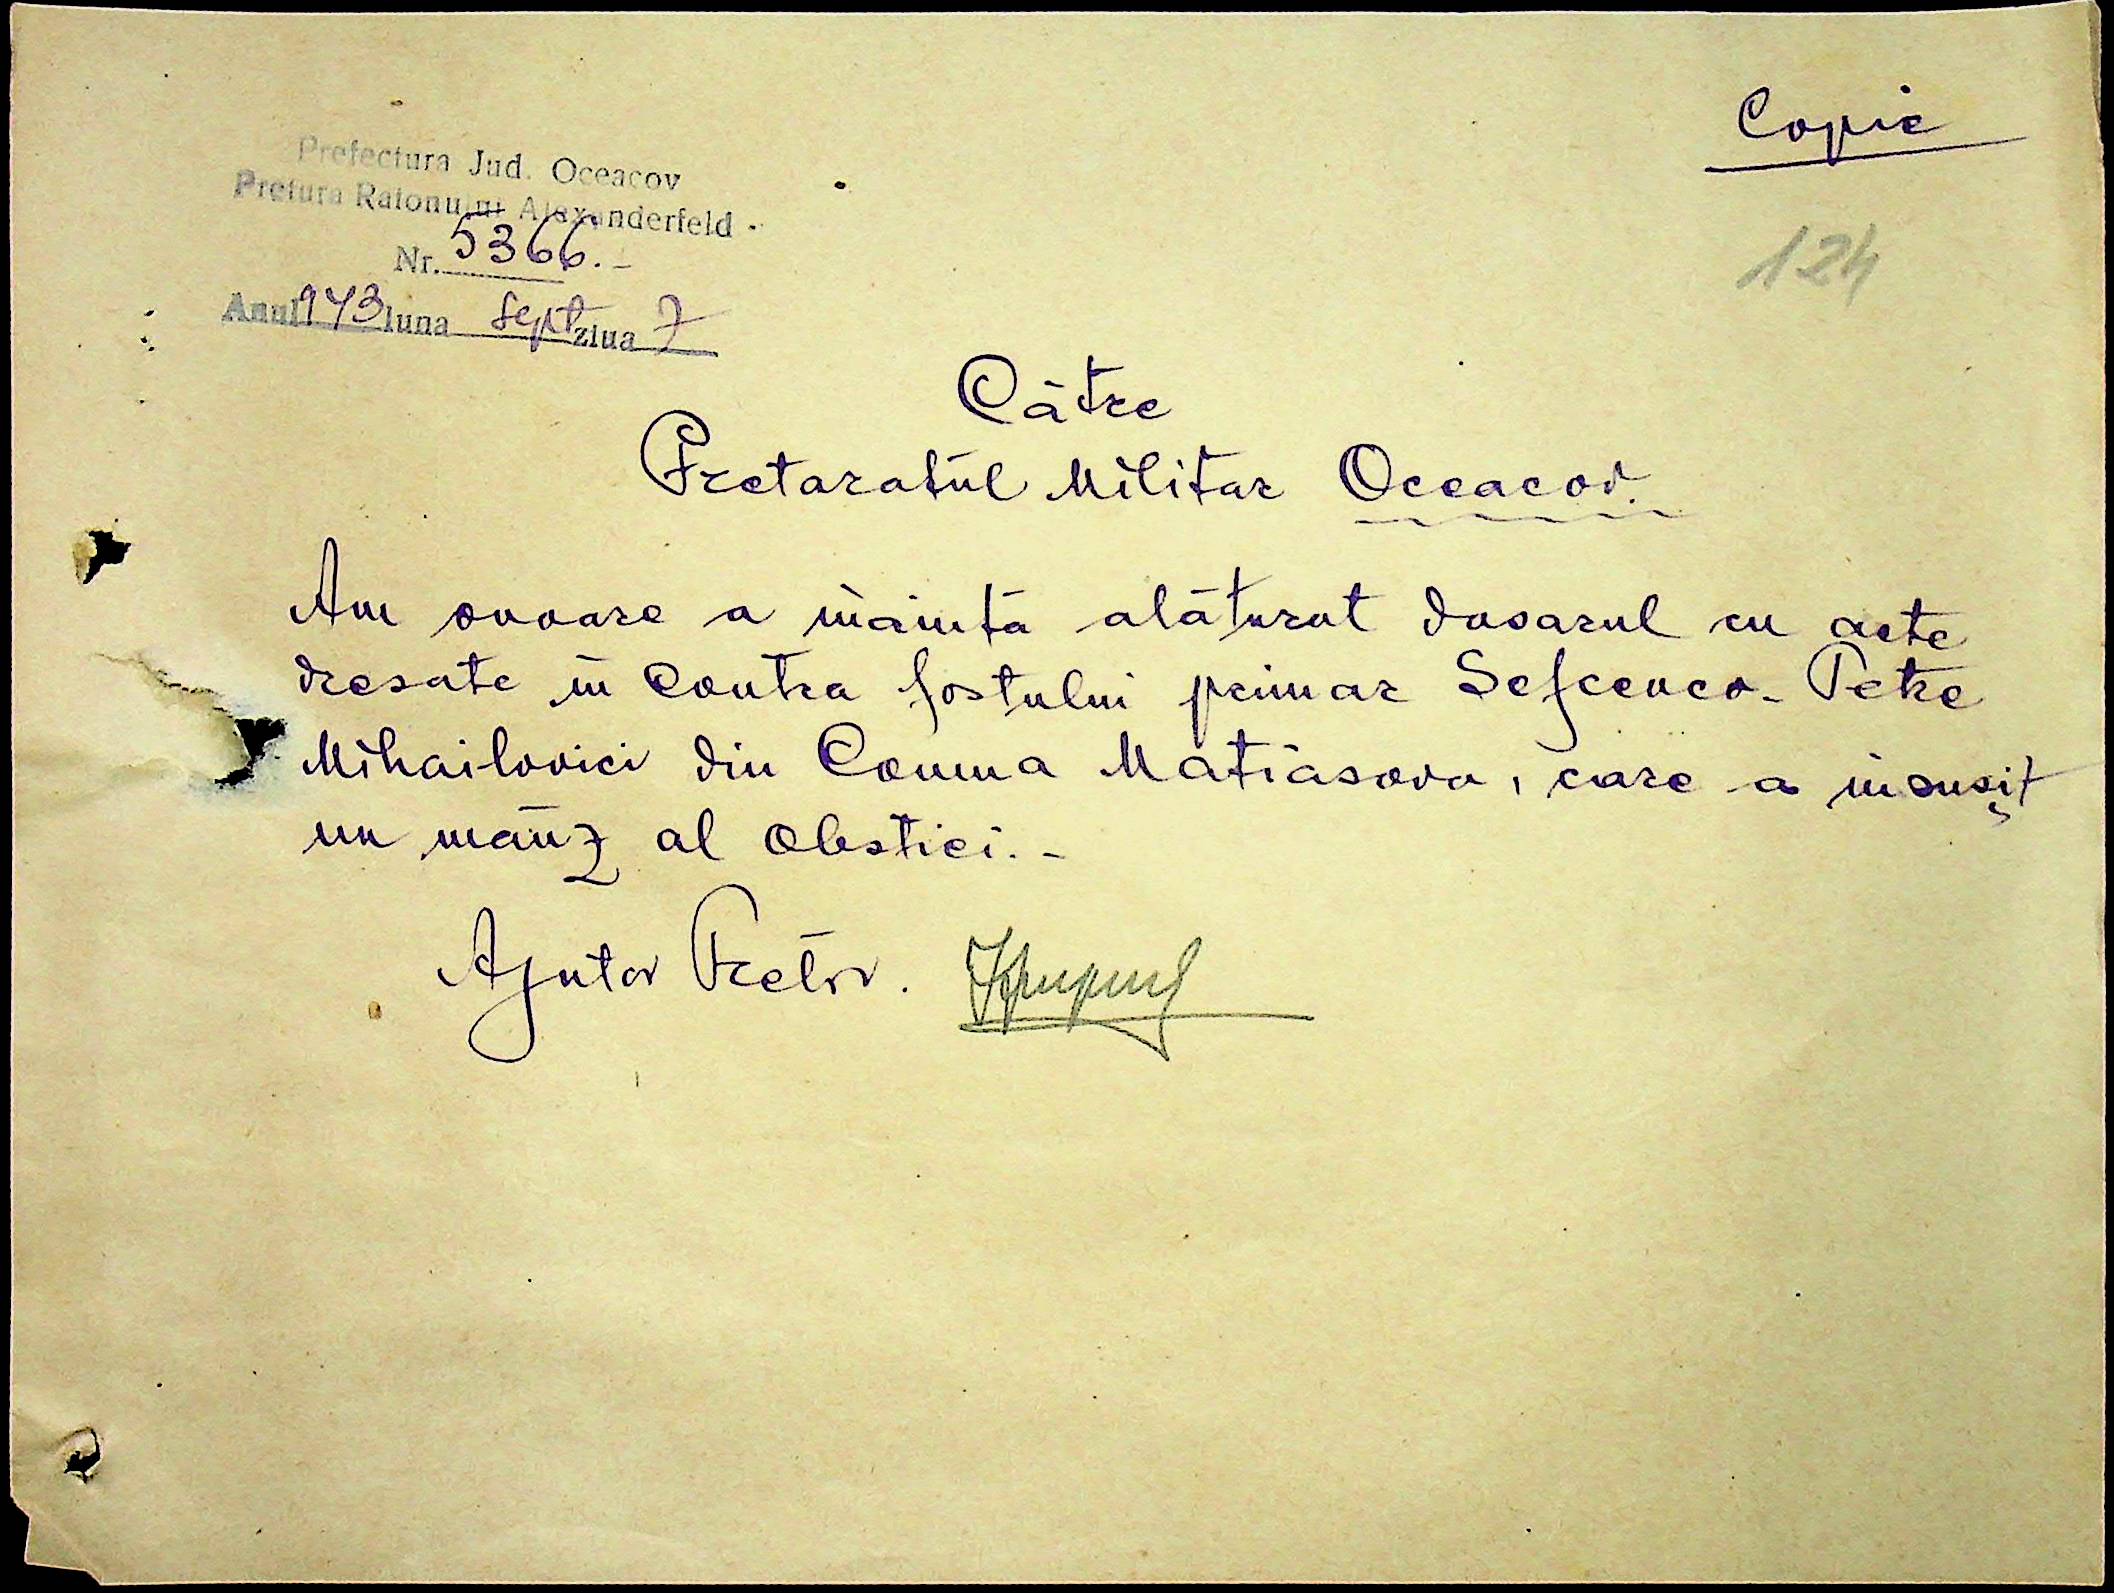 Copie
Prefectura Jud. Oceacov
Pretura Raionului Alexanderfeld
Nr. 5366.-
Anul 943 luna Sept ziua 7
124
Către
Pretoratul Militar Oceacov.
Am onoare a înainta alăturat dosarul cu acte
dresate în contra fostului primar Sefcenco-Petre
Mihailovici din Comuna Matiasova, care a însuşit
un mânz al Obstiei.-
Ajutor Pretor.